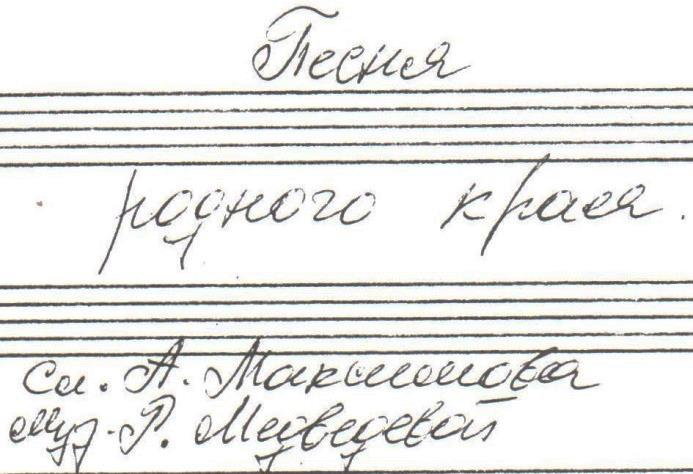 Песня
родного края.
сл. А. Максимова
муз. Р. Медведевой